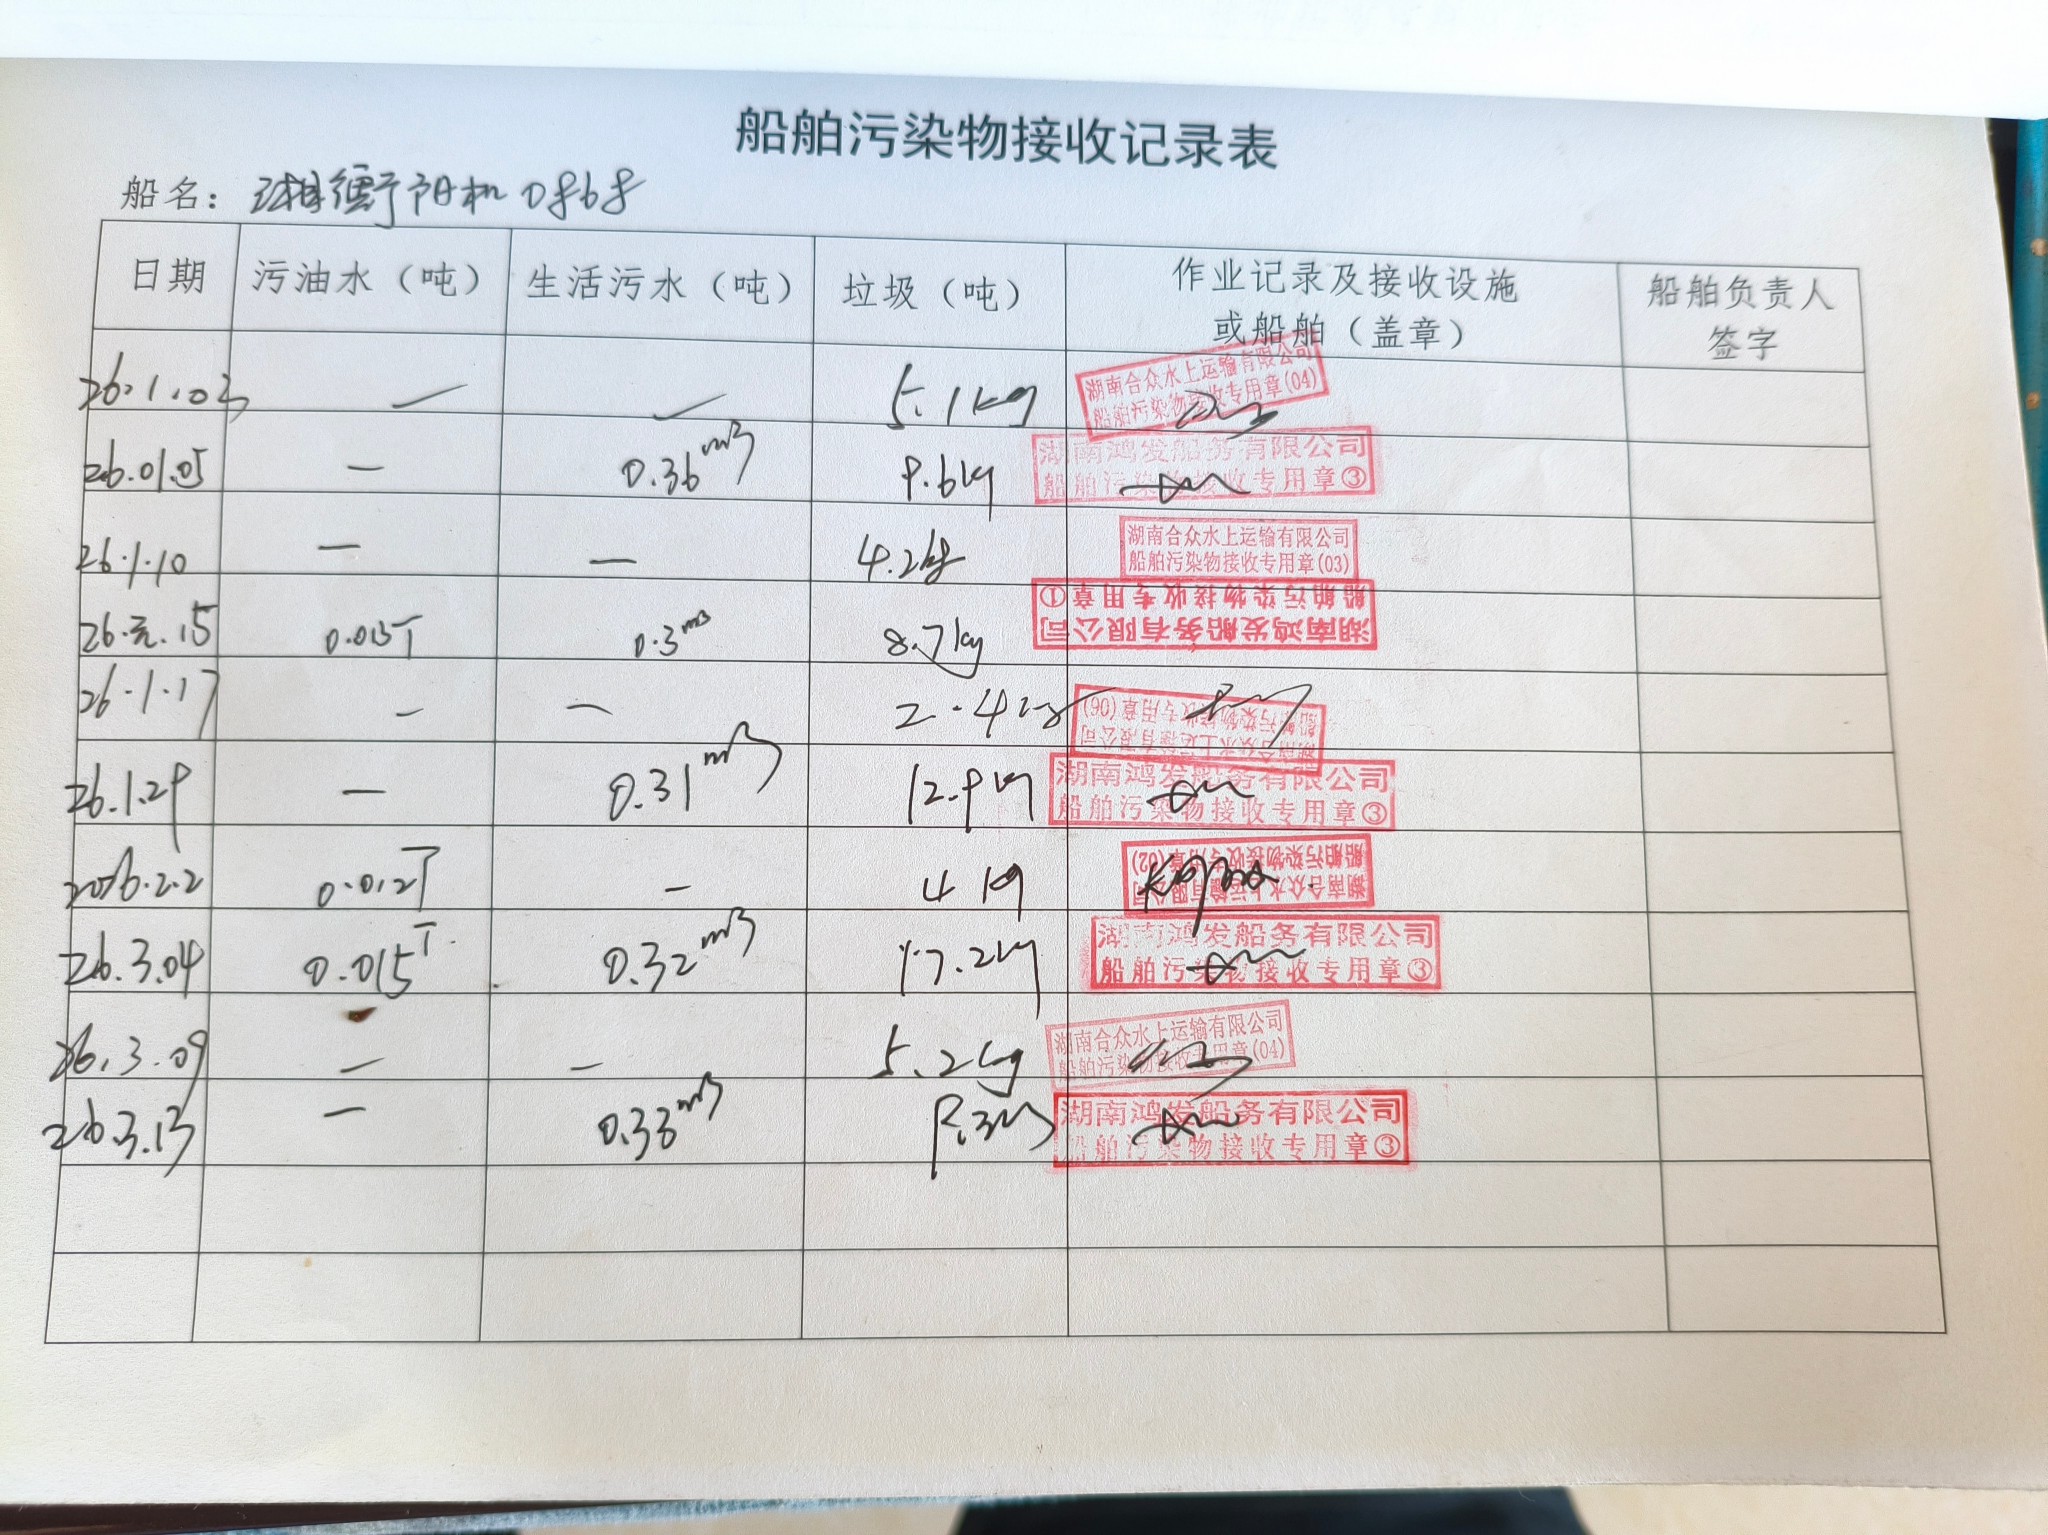 船舶污染物接收记录表
船名：湘衡阳机0868
日期 污油水（吨） 生活污水（吨） 垃圾（吨） 作业记录及接收设施或船舶（盖章） 船舶负责人签字
26.1.03 — — 5.1kg 湖南合众水上运输有限公司 船舶污染物接收专用章(04)
26.01.05 — 0.36m3 9.6kg 湖南鸿发船务有限公司 船舶污染物接收专用章③
26.1.10 — — 4.2kg 湖南合众水上运输有限公司 船舶污染物接收专用章(03)
26.元.15 0.013T 0.3m3 8.7kg 湖南鸿发船务有限公司 船舶污染物接收专用章①
26.1.17 — — 2.4kg 湖南合众水上运输有限公司 船舶污染物接收专用章(06)
26.1.29 — 0.31m3 12.9kg 湖南鸿发船务有限公司 船舶污染物接收专用章③
2026.2.2 0.012T — 4kg 湖南合众水上运输有限公司 船舶污染物接收专用章(02)
26.3.04 0.015T 0.32m3 17.2kg 湖南鸿发船务有限公司 船舶污染物接收专用章③
26.3.09 — — 5.2kg 湖南合众水上运输有限公司 船舶污染物接收专用章(04)
26.3.13 — 0.33m3 9.3kg 湖南鸿发船务有限公司 船舶污染物接收专用章③